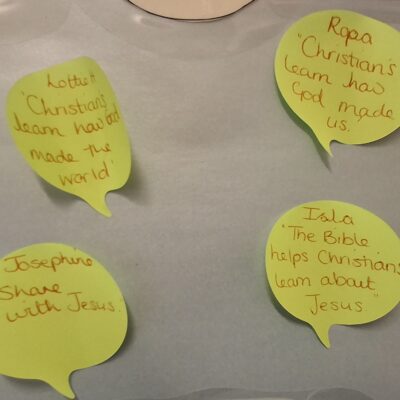 Lottie H
'Christians
learn how God
made the
world'
Ropa
"Christian's
learn how
God made
us.
Josephine
Share
with Jesus.
Isla
"The Bible
helps Christians
learn about
Jesus"